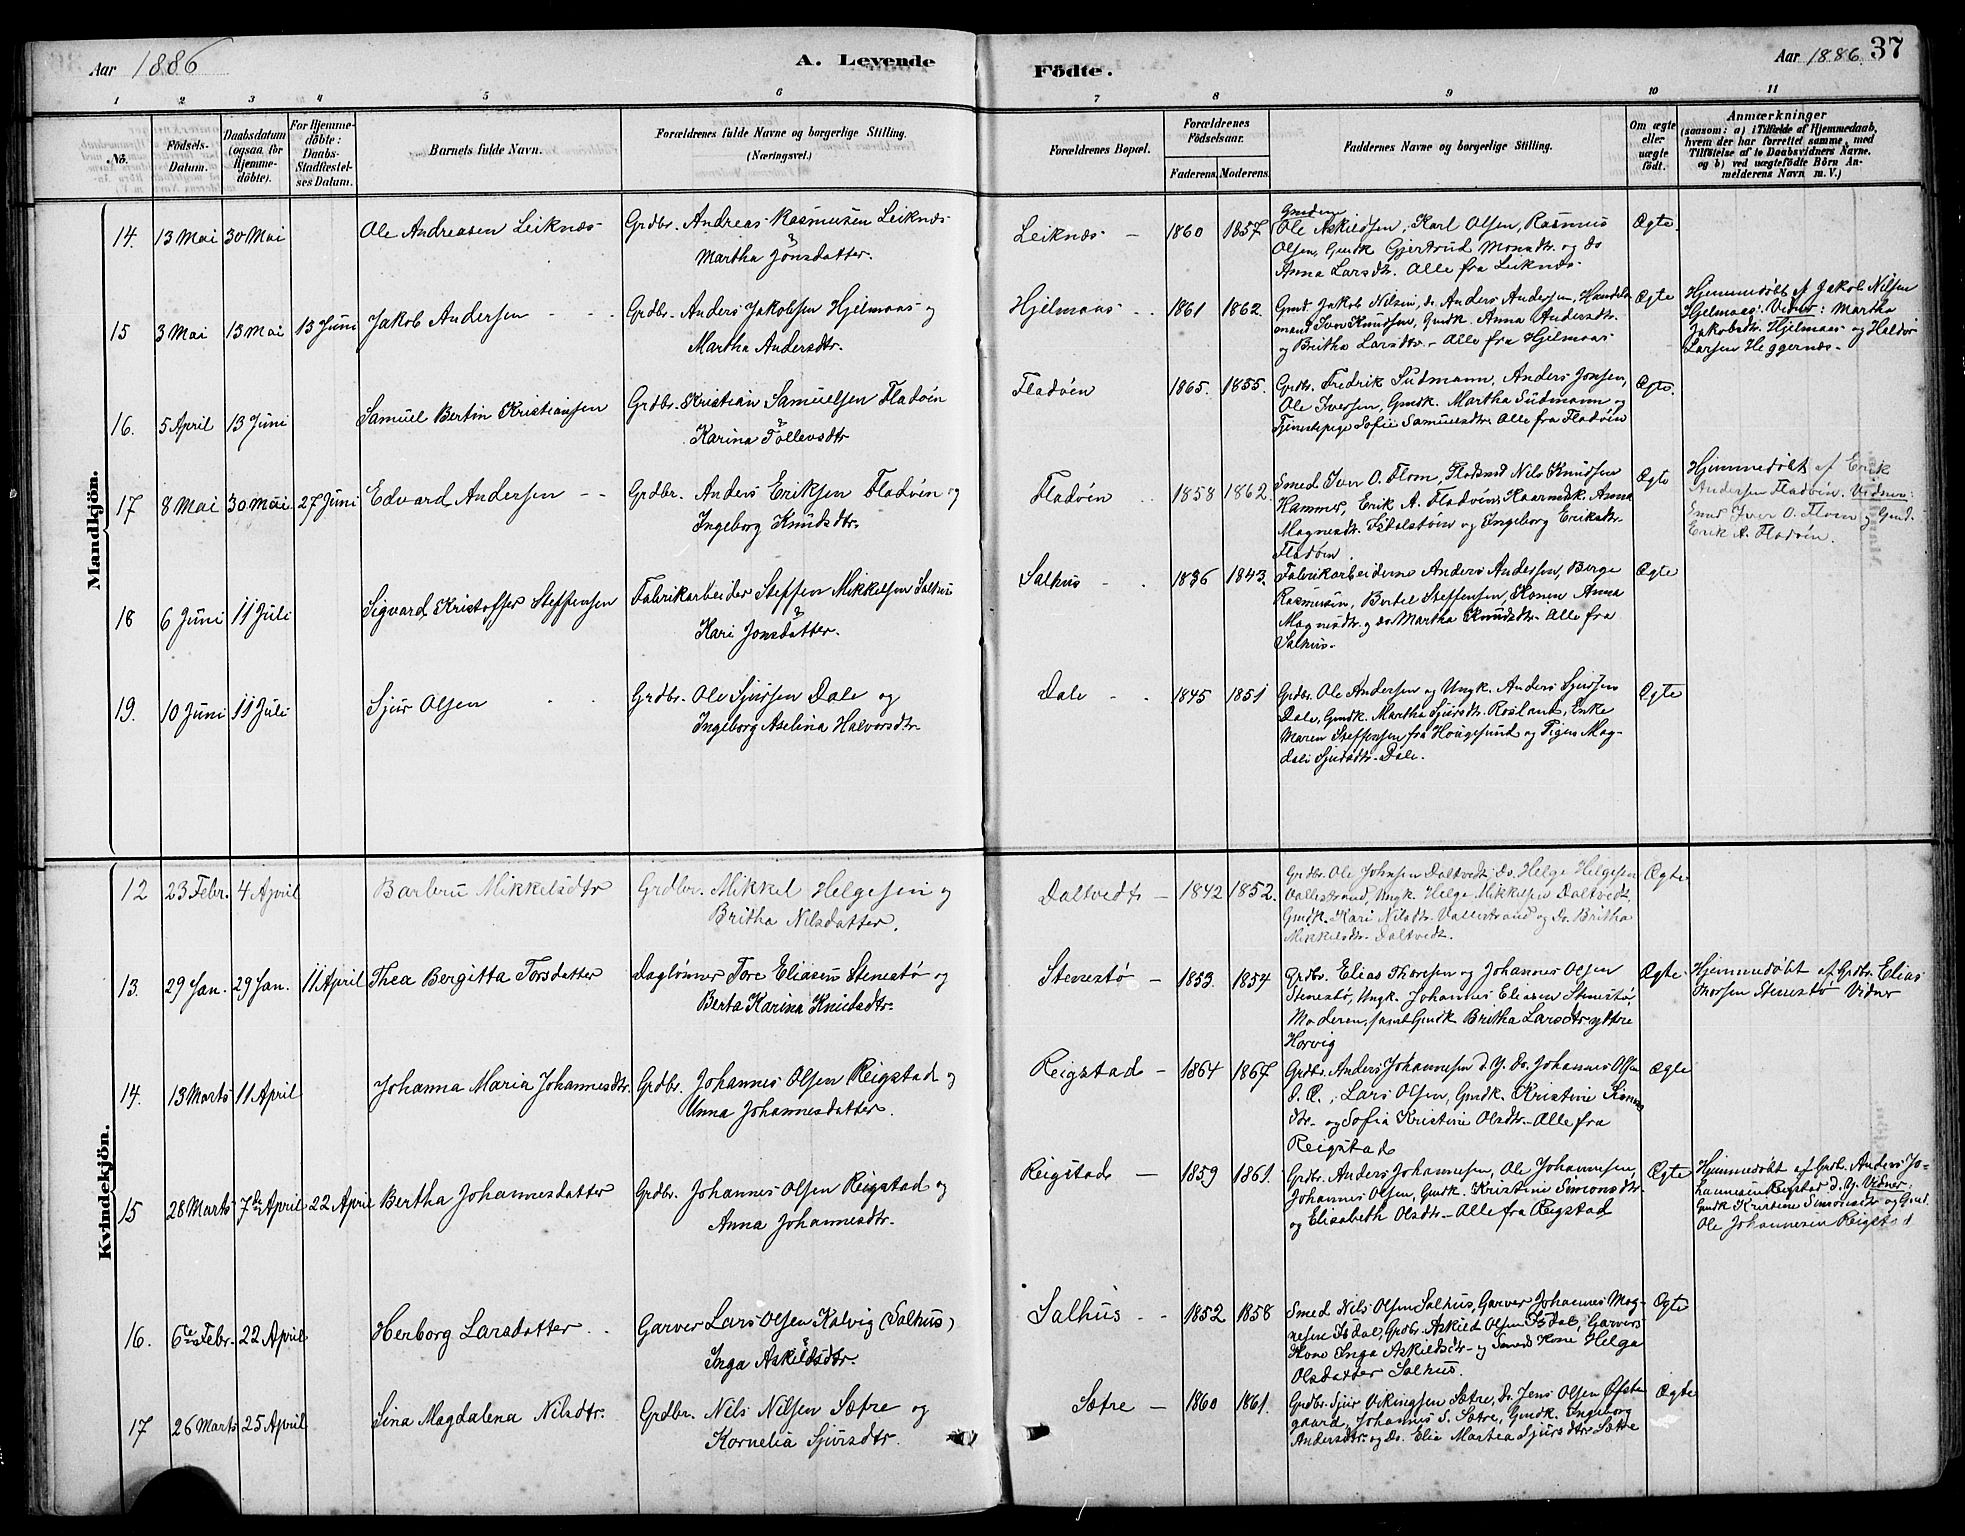 Aar 1886
A. Levende
Födte.
Aar 1886.
37
1 2 3 4 5 6 7 8 9 10 11
No.
Födsels-
Datum.
Daabsdatum
(ogsaa for
Hjemme-
döbte).
For Hjemme-
döbte:
Daabs-
Stadfæstel-
ses Datum.
Barnets fulde Navn.
Forældrenes fulde Navne og borgerlige Stilling.
(Næringsvei.)
Forældrenes Bopæl.
Forældrenes
Födselsaar.
Faderens. Moderens.
Faddernes Navne og borgerlige Stilling.
Om ægte
eller
uægte
födt.
Anmærkninger
(saasom: a) i Tilfælde af Hjemmedaab,
hvem der har forrettet samme, med
Tilföielse af to Daabsvidners Navne.
og b) ved uægtefödte Börn An-
melderens Navn m. V.)
Mandkjön.
14. 13 Mai 30 Mai Ole Andreasen Leiknæs Grdbr. Andreas Rasmusen Leiknæs
Martha Jonsdatter.
Leiknæs - 1860 1857
Ole Askildsen, Karl Olsen, Rasmus
Olsen, Gmdk Gjertrud Monsdtr. og do
Anna Larsdtr. Alle fra Leiknæs.
Ægte.
15 3 Mai 13 Mai 13 Juni Jakob Andersen - - - Grdbr. Anders Jakobsen Hjelmaas og
Martha Andersdtr.
Hjelmaas - 1861 1862.
Gmd. Jakob Nilsen, do. Anders Andersen, Handels-
mand Iver Knudsen, Gmdk. Anna Andersdtr.
og Britha Larsdtr. - Alle fra Hjelmaas
Ægte
Hjemmedøbt af Jakob Nilsen
Hjelmaas. Vidner: Martha
Jakobsdtr. Hjelmaas og Haldor
Larsen Heggernæs.
16. 5 April 13 Juni Samuel Bertin Kristiansen Grdbr. Kristian Samuelsen Fladøen
Karina Tollevsdtr
Fladöen 1865. 1855.
Grdbr. Fredrik Sudmann, Anders Jonsen,
Ole Iversen, Gmdk. Martha Sudmann og
Tjenestepige Sofie Samuelsdtr. Alle fra Fladöen
Ægte.
17 8 Mai 30 Mai 27 Juni Edvard Andersen - - Grdbr. Anders Eriksen Fladvöen og
Ingeborg Knudsdtr.
Fladöen 1858 1862.
Smed Iver O. Flom, Nils Knudsen
Hammer, Erik A. Fladöen, Anna
Magnesdtr. og Ingeborg Eriksdtr.
Fladöen
Ægte
Hjemmedöbt af Erik
Andersen Fladöen. Vidner:
Smed Iver O. Flom og Gmd.
Erik A. Fladöen.
18 6 Juni 11 Juli Sigvard Kristoffer Steffensen Fabrikarbeider Steffen Mikkelsen Salhus
Kari Jonsdatter.
Salhus - 1836 1843.
Fabrikarbeiderne Anders Andersen, Berge
Rasmusen, Bertel Steffensen, Konen Anna
Magnesdtr. og do Martha Knudsdtr. Alle fra
Salhus.
Ægte
19. 10 Juni 11 Juli Sjur Olsen Grdbr. Ole Sjursen Dale og
Ingeborg Aselina Halvorsdtr.
Dale - 1845 1851
Grdbr. Ole Andersen og Ungk. Anders Sjursen
Dale, Gmdk. Martha Sjursdtr. Rosland, Enke
Maren Steffensen fra Hougesund og Pigen Mag-
dali Sjursdtr. Dale.
Ægte
Kvindekjön.
12 23 Febr. 4 April Barbru Mikkelsdtr Grdbr. Mikkel Helgesen og
Britha Nilsdatter.
Daltvedt - 1842 1852.
Grdbr. Ole Johnsen Daltvedt, do. Helge Helgesen
Vallestrand, Ungk. Helge Mikkelsen Daltvedt,
Gmdk. Kari Nilsdtr. Vallestrand og do. Britha
Mikkelsdtr. Daltvedt.
Ægte
13. 29 Jan. 29 Jan. 11 April Thea Bergitta Torsdatter Daglönner Tore Eliasen Stenestø og
Berta Karina Knudsdtr.
Stenestø - 1853. 1854
Grdbr. Elias Thoresen og Johannes Olsen
Stenestø, Ungk. Johannes Eliasen Stenestø,
Moderen, samt Gmdk Britha Larsdtr. ytre
Horvig
Ægte
Hjemmedöbt af Grdbr. Elias
Thorsen Stenestø Vidner
14. 13 Marts 11 April Johanna Maria Johannesdtr. Grdbr. Johannes Olsen Reigstad og
Anna Johannesdatter.
Reigstad - 1864 1867
Grdbr. Anders Johannesen d. Y. do. Johannes Olsen
d. Æ., Lars Olsen, Gmdk. Kristine Simons
dtr. og Sofia Kristine Olsdtr. - Alle fra
Reigstad
Ægte
15 28 Marts 7de April 22 April Bertha Johannesdatter Grdbr. Johannes Olsen Reigstad og
Anna Johannesdtr.
Reigstad - 1859 1861.
Grdbr. Anders Johannesen, Ole Johannesen,
Johannes Olsen, Gmdk. Kristine Simonsdtr.
og Elisabeth Olsdtr. - Alle fra Reigstad
Ægte
Hjemmedöbt af Grdbr. Anders Jo-
hannesen Reigstad d. Y. Vidner:
Gmdk Kristine Simonsdtr og Gmd.
Ole Johannesen Reigstad
16. 6te Febr. 22 April Herborg Larsdatter Garver Lars Olsen Kalvig (Salhus)
Inga Askildsdtr.
Salhus - 1852 1858
Smed Nils Olsen Salhus, Garver Johannes Mag-
nesen Isdal, Grdbr. Askild Olsen Isdal, Garvers
Kone Inga Askildsdtr. og Smeds Kone Helga
Olsdatter Salhus.
Ægte
17 26 Marts 25 April Sina Magdalena Nilsdtr. Grdbr. Nils Nilsen Sætre og
Kornelia Sjursdtr.
Sætre - 1860 1861.
Grdbr. Sjur Vikingsen Sætre, do. Jens Olsen Øfste
gaard, Johannes S. Sætre, Gmdk. Ingeborg
Andersdtr. og do. Elia Marthea Sjursdtr Sætre
Ægte